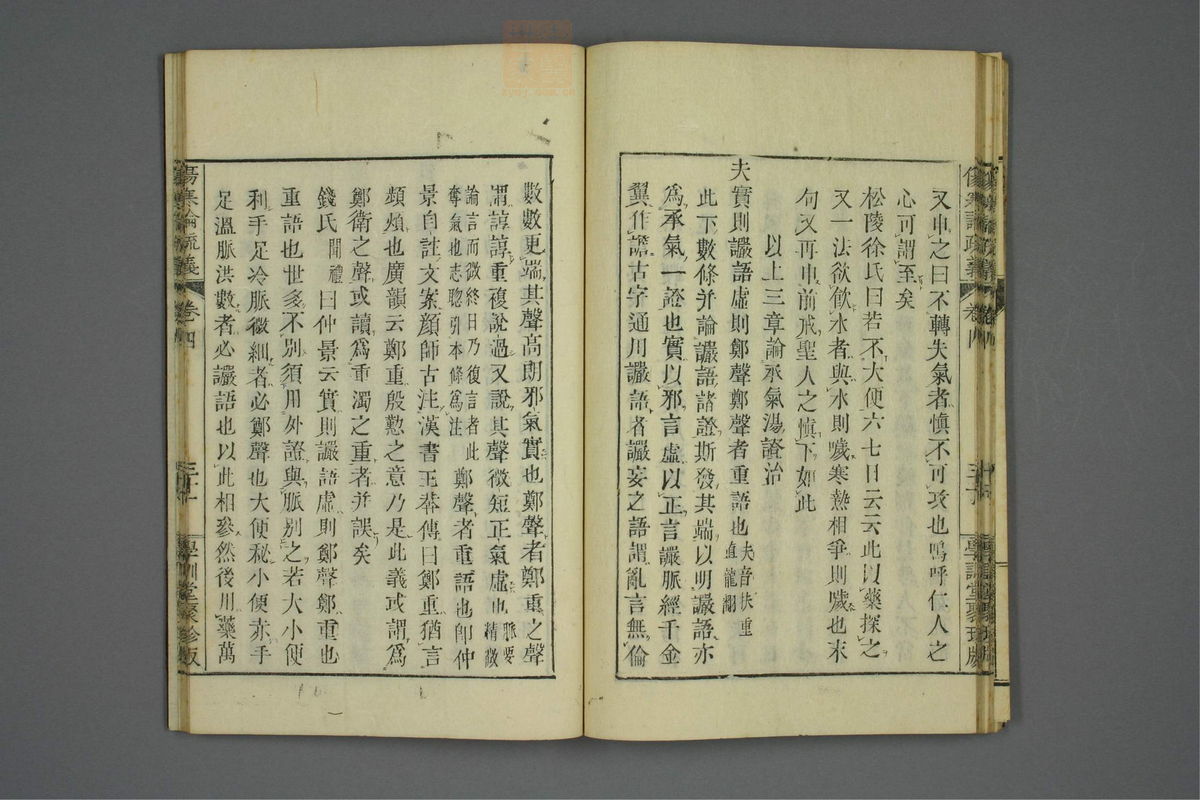 又申之曰不轉失氣者愼不可攻也嗚呼仁人之
心可謂至矣
松陵徐氏曰若不大便六七日云云此以藥探之
又一法欲飮水者與水則噦寒熱相爭則噦也末
句又再申前戒聖人之愼下如此
以上三章論承氣湯證治
夫實則讝語虛則鄭聲鄭聲者重語也夫音扶重直龍翻
此下數條幷論讝語諸證斯發其端以明讝語亦
爲承氣一證也實以邪言虛以正言讝脈經千金
翼作譫古字通用讝語者讝妄之語謂亂言無倫
傷寒論疏義 卷四 學訓堂聚珍版
數數更端其聲高朗邪氣實也鄭聲者鄭重之聲
謂諄諄重複說過又說其聲微短正氣虛也脈要精微
論言而微終日乃復言者此奪氣也志聰引本條爲注鄭聲者重語也卽仲
景自註文案顏師古注漢書王莽傳曰鄭重猶言
頻煩也廣韻云鄭重殷懃之意乃是此義或謂爲
鄭衛之聲或讀爲重濁之重者幷誤矣
錢氏聞禮曰仲景云實則讝語虛則鄭聲鄭重也
重語也世多不別須用外證與脈別之若大小便
利手足冷脈微細者必鄭聲也大便秘小便赤手
足溫脈洪數者必讝語也以此相參然後用藥萬
傷寒論疏義 卷四 三十 學訓堂聚珍版